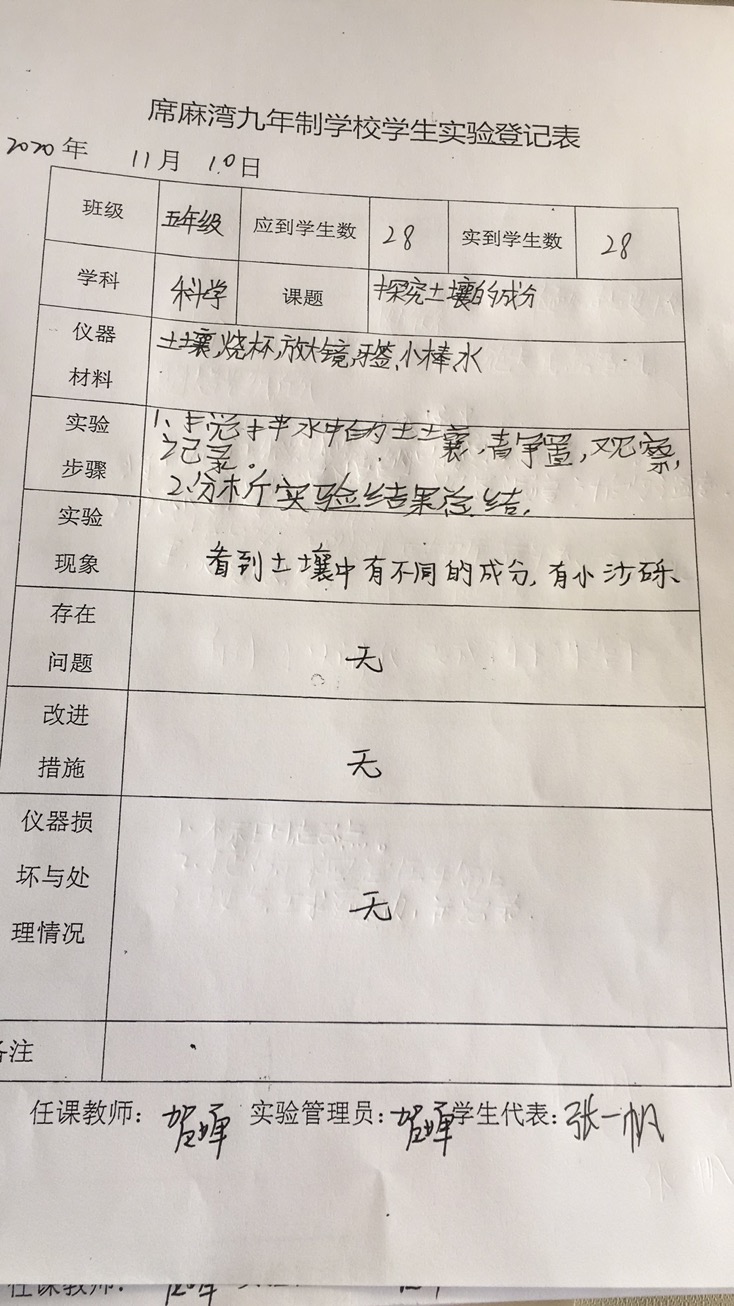 席麻湾九年制学校学生实验登记表
2020年 11月 10日
班级 五年级 应到学生数 28 实到学生数 28
学科 科学 课题 探究土壤的成分
仪器
材料
土壤,烧杯,放大镜,牙签、小棒、水
实验
步骤
1、搅拌水中的土壤,静置,观察,
记录。
2、分析实验结果总结.
实验
现象
看到土壤中有不同的成分,有小沙砾、
存在
问题
无
改进
措施
无
仪器损
坏与处
理情况
无
备注
任课教师: 贺 实验管理员: 贺 学生代表: 张一帆
任课教师: